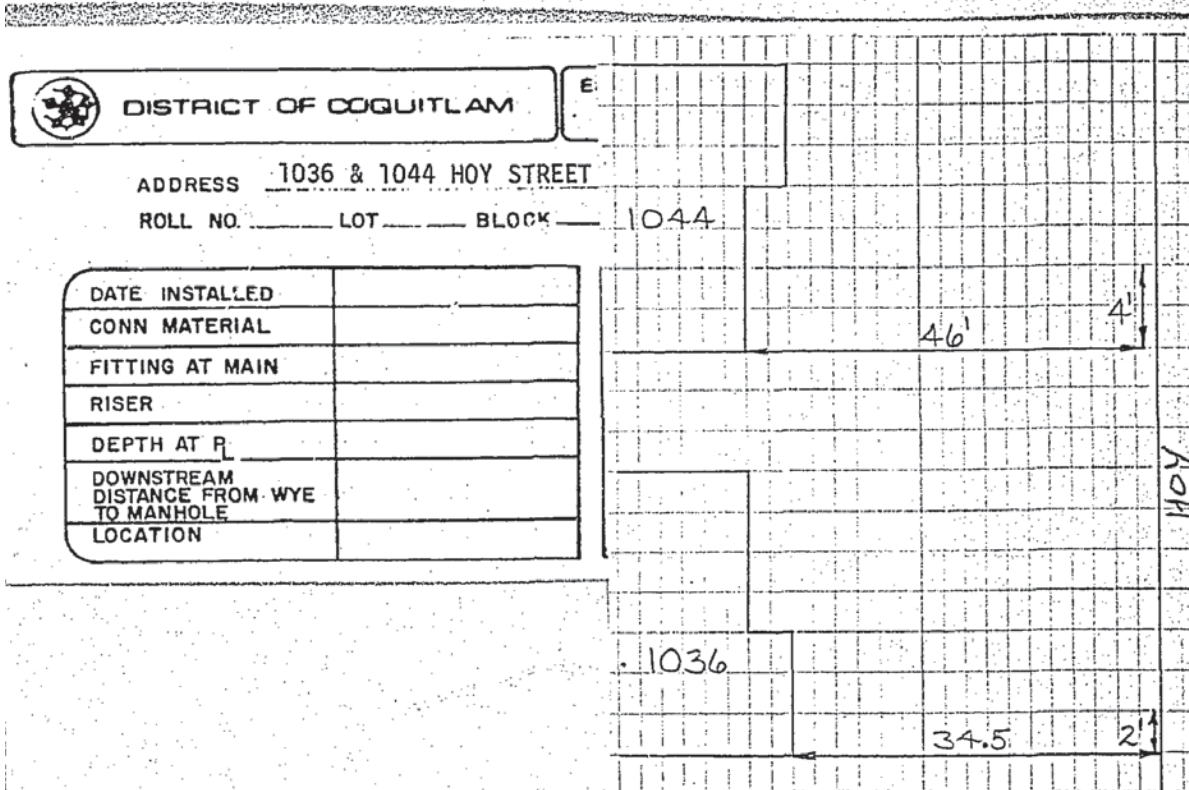 DISTRICT OF COQUITLAM
E
ADDRESS 1036 & 1044 HOY STREET
ROLL NO. LOT BLOCK
DATE INSTALLED
CONN MATERIAL
FITTING AT MAIN
RISER
DEPTH AT PL
DOWNSTREAM
DISTANCE FROM WYE
TO MANHOLE
LOCATION
1044
46'
4'
HOY
1036
34.5
2'